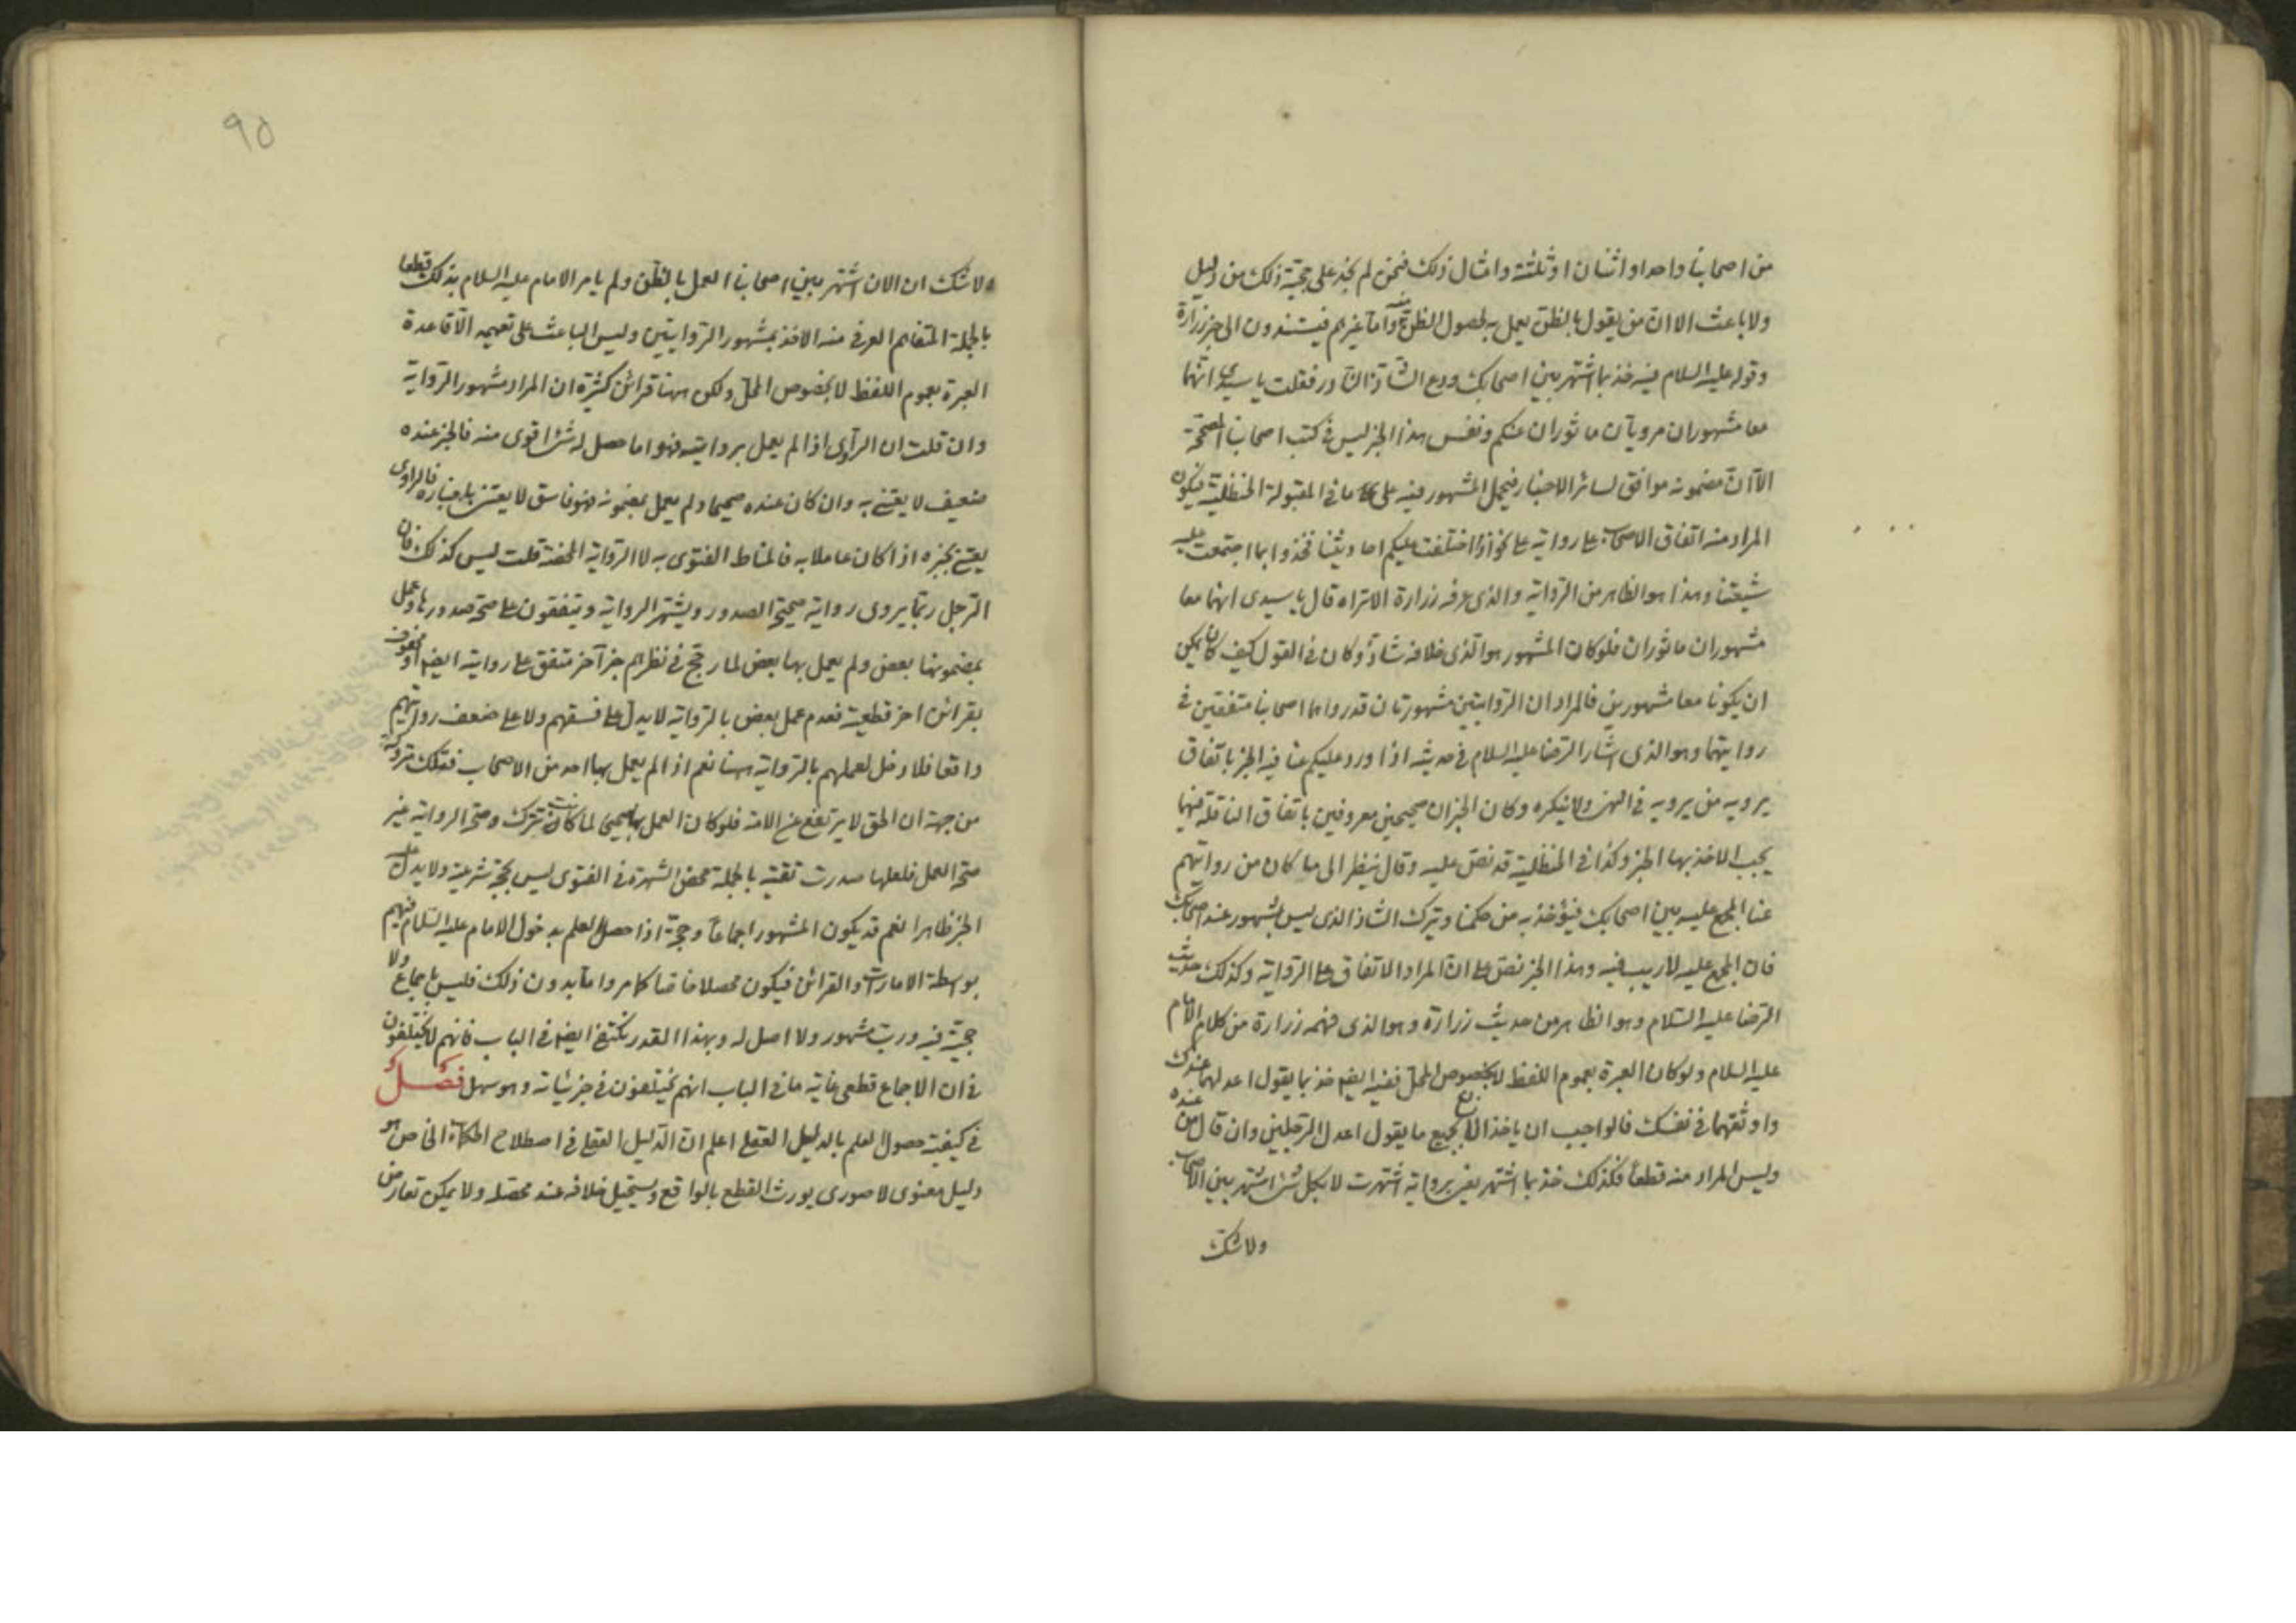 من اصحابنا واحد او اثنان او ثلثة وامثال ذلك فنحن لم نجد على حجّية ذلك من دليل
ولا باعث الا انّ من يقول بالظنّ يعمل به لحصول الظن منه وامّا غيرهم فيستندون الى خبر زرارة
وقوله عليه السلام فيه خذ بما اشتهر بين اصحابك ودع الشاذّ النادر فقلت يا سيدي انهما
معا مشهوران مرويان ماثوران عنكم ونفس هذا الخبر ليس في كتب اصحابنا المصححة
الّا انّ مضمونه موافق لسائر الاخبار فيحمل المشهور فيه على ما في المقبولة الحنظلية فيكون
المراد منه اتفاق الاصحاب على رواية على نحو اذا اختلفت عليكم احاديثنا فخذوا بما اجتمعت عليه
شيعتنا وهذا هو الظاهر من الرواية والذي عرفه زرارة الا تراه قال يا سيدي انهما معا
مشهوران ماثوران فلو كان المشهور هو الّذي خلافه شاذّ وكان في القول كيف كان يمكن
ان يكونا معا مشهورين فالمراد ان الروايتين مشهورتان قد رواهما اصحابنا متفقين في
روايتهما وهو الذي اشار الرضا عليه السلام في حديثه اذا ورد عليكم عنا فيه الخبر باتفاق
يرويه من يرويه في النهي ولا ينكره وكان الخبران صحيحين معروفين باتفاق الناقلة فيهما
يجب الاخذ بهما الخبر وكذا في الحنظلية قد نصّ عليه وقال ينظر الى ما كان من روايتهم
عنا المجمع عليه بين اصحابك فيؤخذ به من حكمنا ويترك الشاذ الذي ليس بمشهور عند اصحابك
فان المجمع عليه لا ريب فيه وهذا الخبر نصّ على انّ المراد الاتفاق على الرواية وكذلك حديث
الرضا عليه السّلام وهو الظاهر من حديث زرارة وهو الذي فهمه زرارة من كلام الامام
عليه السلام ولو كان العبرة بعموم اللفظ لا بخصوص المحلّ ففيه ايضا خذ بما يقول اعدلهما عندك
واوثقهما في نفسك فالواجب ان ياخذ الانسان بجميع ما يقول اعدل الرجلين وان قال من عنده
وليس المراد منه قطعا فكذلك خذ بما اشتهر يعني برواية اشتهرت لا بكل شئ اشتهر بين الاصحاب
ولا شك
٩٥
ولا شك ان الان اشتهر بين اصحابنا العمل بالظن ولم يامر الامام عليه السلام بذلك قطعا
بالجملة المتفاهم العرفي منه الاخذ بمشهور الروايتين وليس الباعث على تعميمه الّا قاعدة
العبرة بعموم اللفظ لا بخصوص المحلّ ولكن ههنا قرائن كثيرة ان المراد مشهور الرواية
وان قلت ان الراوي اذا لم يعمل بروايته فهو اما حصل له شئ اقوى منه فالخبر عنده
ضعيف لا يعتني به وان كان عنده صحيحا ولم يعمل بمضمونه فهو فاسق لا يعتنى باخباره فالراوي
يعتنى بخبره اذا كان عاملا به فالمناط الفتوى به لا الرواية المحضة قلت ليس كذلك فان
الرجل ربّما يروى رواية صحيحة الصدور ويشتهر الرواية ويتفقون على صحة صدورها وعمل
بمضمونها بعض ولم يعمل بها بعض لما رجّح في نظرهم خبر آخر متفق على روايته ايضا او محفوف
بقرائن اخر قطعية فعدم عمل بعض بالرواية لا يدلّ على فسقهم ولا على ضعف روايتهم
واقعا فلا دخل لعملهم بالرواية ههنا نعم اذا لم يعمل بها احد من الاصحاب فتلك متروكة
من جهة ان الحق لا يرتفع عن الامة فلو كان العمل بها صحيحا لما كانت تترك وصحة الرواية غير
صحة العمل فلعلها صدرت تقية بالجملة محض الشهرة في الفتوى ليس بحجة شرعية ولا يدل عليه
الخبر ظاهرا نعم قد يكون المشهور اجماعا وحجّة اذا حصل العلم بدخول الامام عليه السّلام فيهم
بوسطة الامارات والقرائن فيكون محصلا خاصا كما مر واما بدون ذلك فليس باجماع ولا
حجيّة فيه وربّ مشهور ولا اصل له وبهذا القدر نكتفي ايضا في الباب فانهم لا يختلفون
في ان الاجماع قطعى غاية ما في الباب انهم يختلفون في جزئياته وهو سهل فصل
في كيفية حصول العلم بالدليل العقلي اعلم ان الدليل العقلي في اصطلاح الحكماء الخاص هو
دليل معنوى لا صورى يورث القطع بالواقع ويستحيل خلافه عند محصّله ولا يمكن تعارض